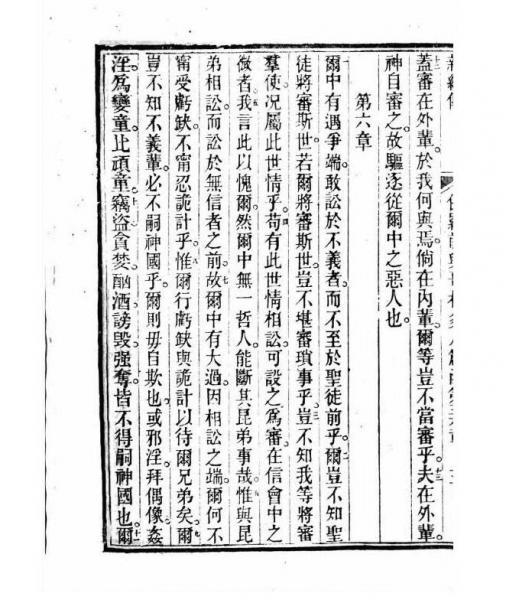 蓋審在外輩。於我何與焉。倘在內輩。爾等豈不當審乎。夫在外輩。
神自審之。故驅逐從爾中之惡人也。
第六章
爾中有遇爭端。敢訟於不義者。而不至於聖徒前乎。爾豈不知聖
徒將審斯世。若爾將審斯世。豈不堪審瑣事乎。豈不知我等將審
羣使。况屬此世情乎。苟有此世情相訟。可設之爲審在信會中之
微者。我言此以愧爾。然爾中無一哲人。能斷其昆弟事哉。惟與昆
弟相訟。而訟於無信者之前。故爾中有大過。因相訟之端。爾何不
甯受虧缺。不甯忍詭計乎。惟爾行虧缺與詭計以待爾兄弟矣。爾
豈不知不義輩。必不嗣神國乎。爾則毋自欺也。或邪淫。拜偶像。姦
淫。爲孌童。比頑童。竊盜。貪婪。酗酒。謗毀。强奪。皆不得嗣神國也。爾